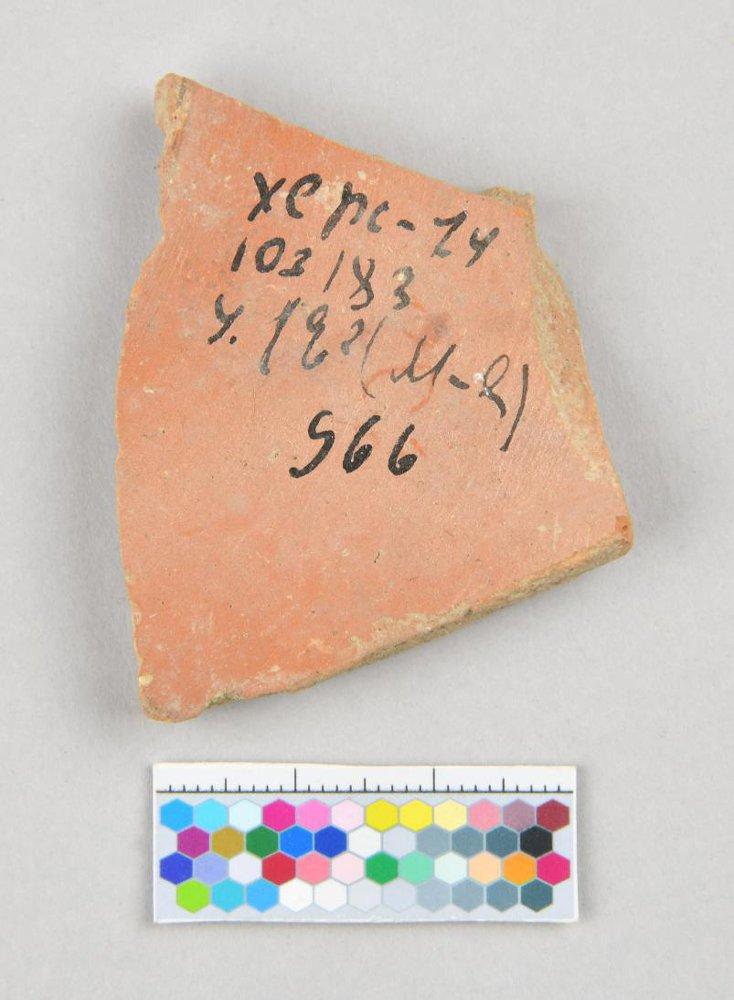 Херс-24
103/83
у. 182 (М-2)
966